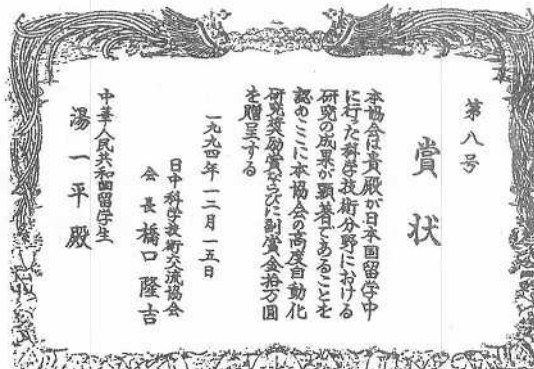 第八号
賞状
本協会は貴殿が日本国留学中
に行った科学技術分野における
研究の成果が顕著であることを
認めここに本協会の高度自動化
研究奨励賞ならびに副賞金拾万圓
を贈呈する
一九九四年一二月一五日
日中科学技術交流協会
会長 橋口隆吉
中華人民共和国留学生
湯一平殿